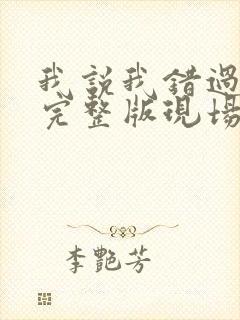 我說我錯過
完整版現場
李艷芳